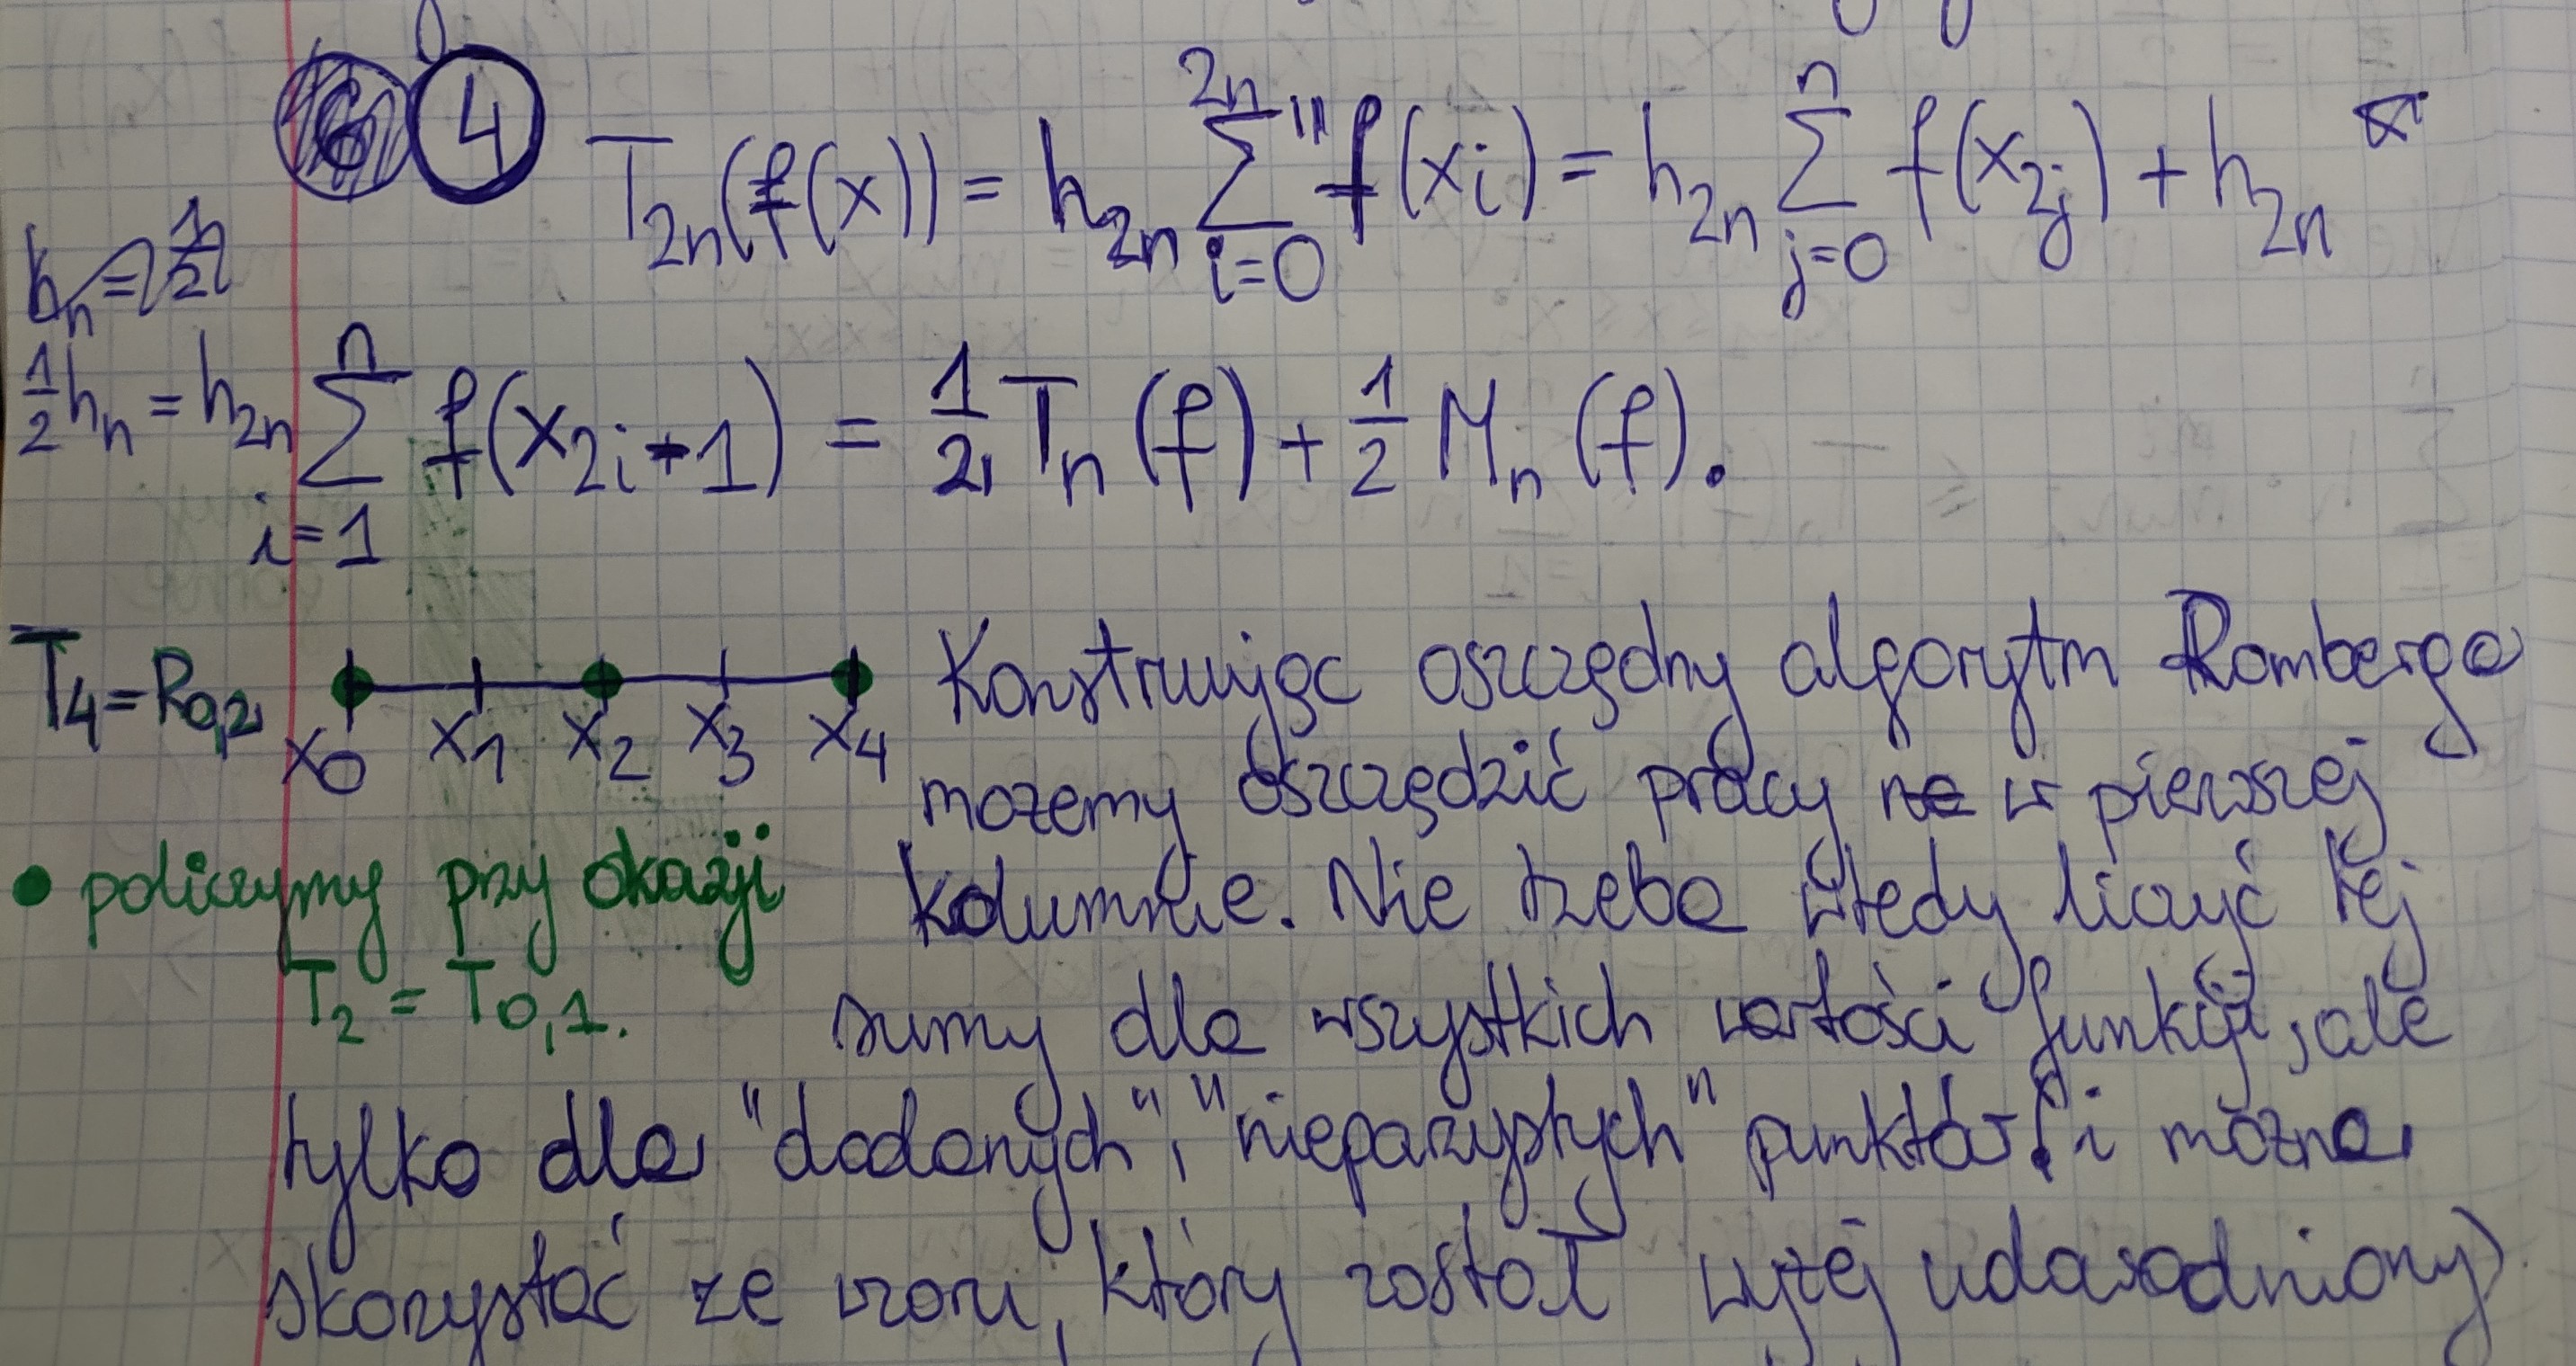 ④ T_{2n}(f(x)) = h_{2n} \sum_{i=0}^{2n}'' f(x_i) = h_{2n} \sum_{j=0}^{n} f(x_{2j}) + h_{2n}
½h_n = h_{2n}
\sum_{i=1}^{n} f(x_{2i-1}) = ½ T_n(f) + ½ M_n(f).
T_4 = R_{0,2}
x_0 x_1 x_2 x_3 x_4
Konstruując oszczędny algorytm Romberga
możemy oszczędzić pracy w pierwszej
kolumnie. Nie trzeba wtedy liczyć tej
sumy dla wszystkich wartości funkcji, ale
tylko dla "dodanych", "nieparzystych" punktów i można
skorzystać ze wzoru, który został wyżej udowodniony
• policzymy przy okazji
T_2 = T_{0,1}.